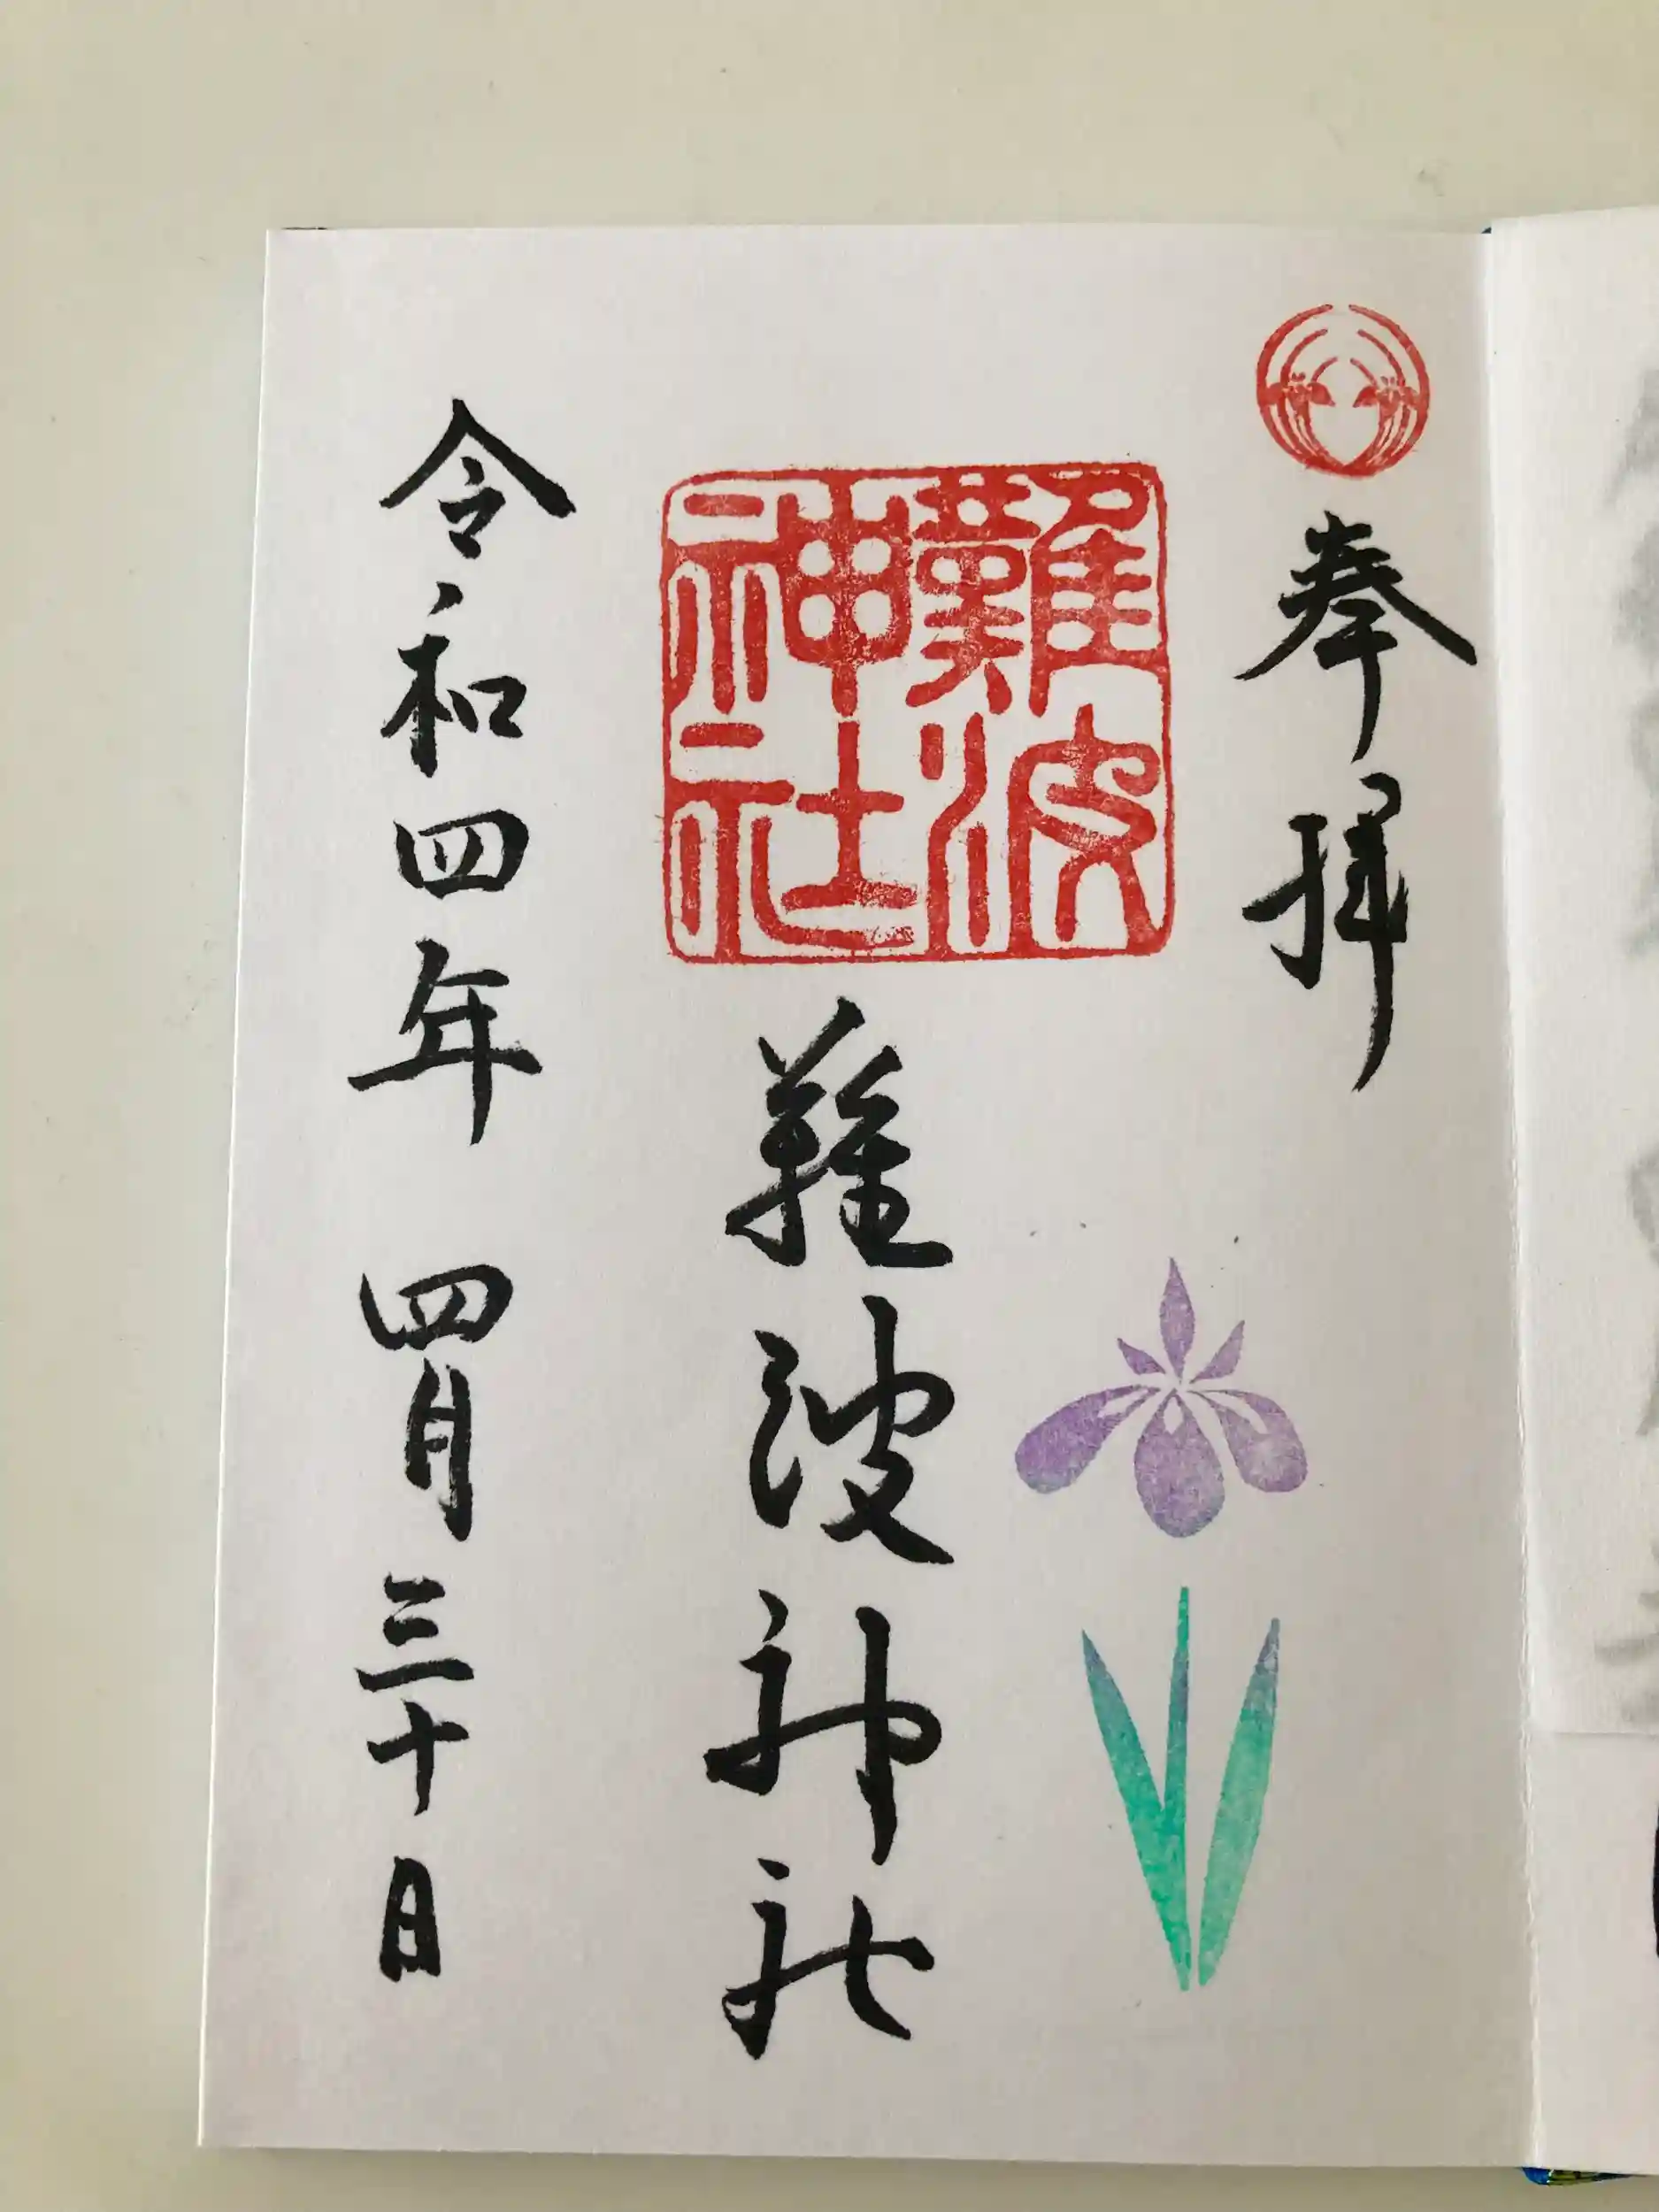 奉拝
難波神社
難波神社
令和四年 四月三十日